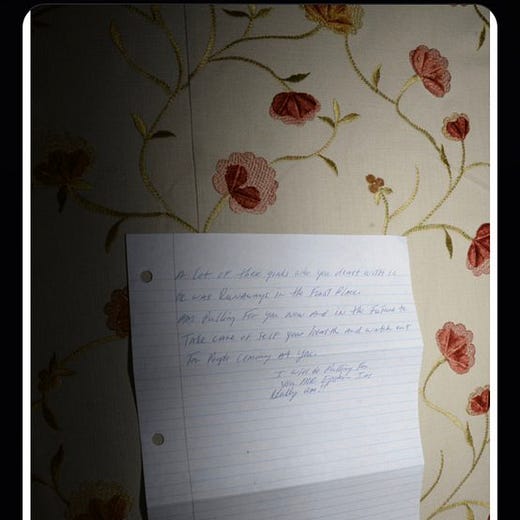 A Lot of these girls who you dealt with is
OR was Runaways in the First Place.
Am Pulling For you Now And in the Future to
Take care of self your Health And watch out
For People Coming At You.
I will be Pulling For
you MR. Epstein I'm
Really Am!!